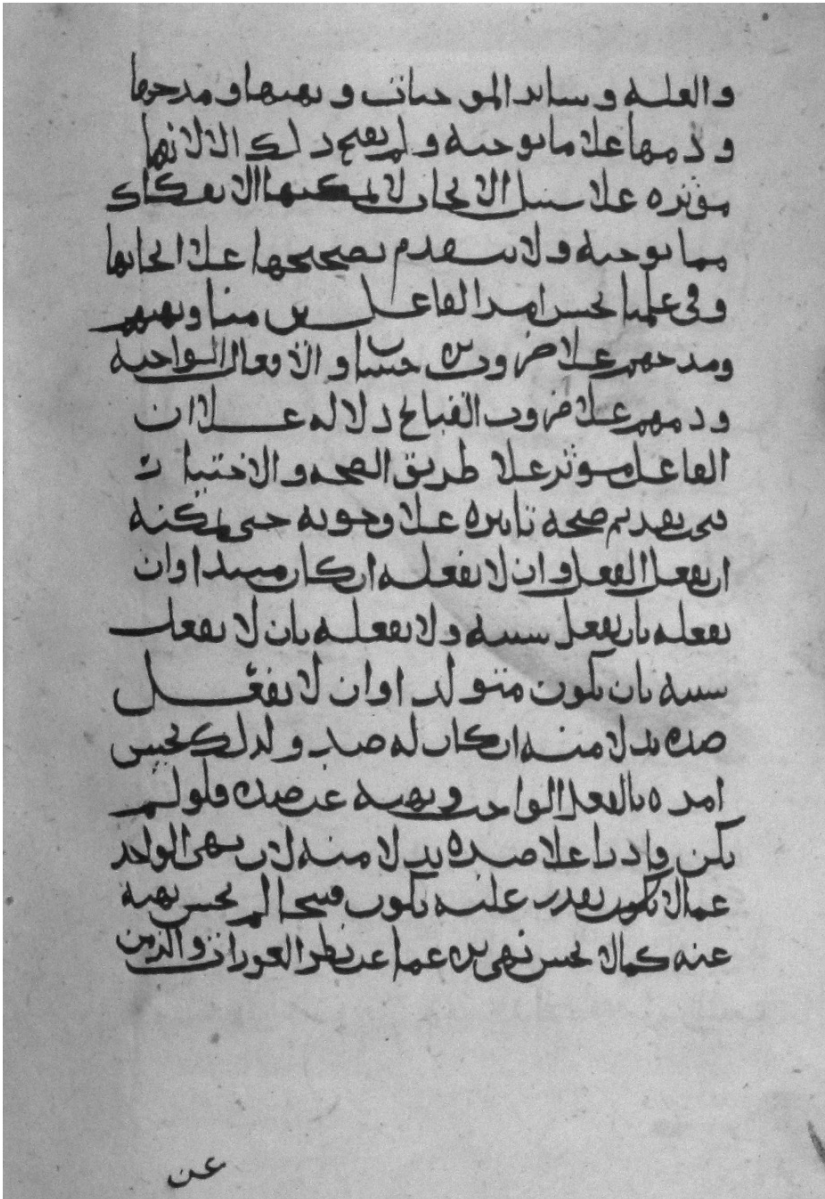 والعلة وسائر الموجبات ونهيها ومدحها
وذمها علا ما توجبه ولم يقبح ذلك الا لانها
مؤثرة علا سبيل الايجاب لا يمكنها الانفكاك
مما توجبه ولا يتقدم تصحيحها علا ايجابها
وفي علمنا بحسن امر الفاعلين منا ونهيهم
ومدحهم علا ضروب من الافعال الواجبة
وذمهم علا ضروب القبائح دلالة علا ان
الفاعل مؤثر علا طريق الصحة والاختيار
فمتى تقدم صحة تاثيره علا وجوبه حتى يمكنه
ان يفعل الفعل وان لا يفعله ان كان مبتدا وان
يفعله بان يفعل سببه ولا يفعله بان لا يفعل
سببه بان يكون متولدا وان لا يفعل
ضده بدلا منه ان كان له ضد ولذلك يحسن
امره بالفعل الواجب ونهيه عن ضده فلو لم
يكن قادرا علا ضده بدلا منه لان نهي الواحد
عما لا يكون يقدر عليه يكون قبيحا لم يحسن نهيه
عنه كما لا يحسن نهي من عما عن نظر العورات والزمن
عن